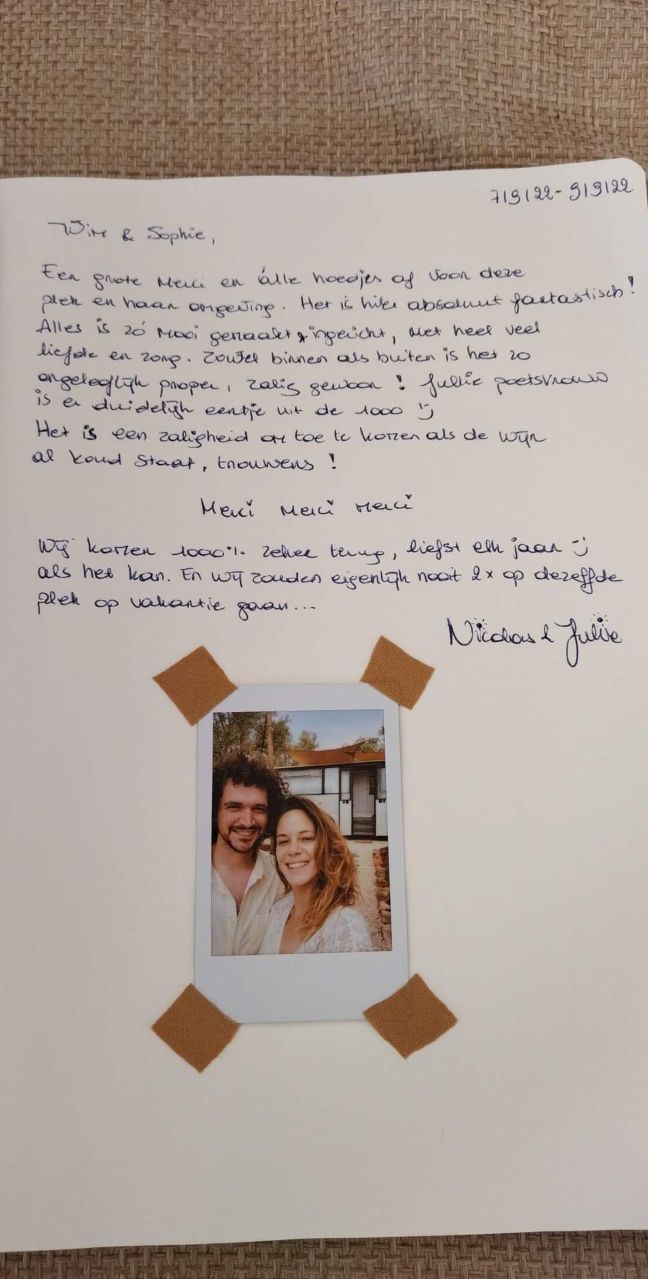 7/9/22 - 9/9/22
Wim & Sophie,
Een grote Merci en álle hoedjes af voor deze
plek en haar omgeving. Het is hier absoluut fantastisch!
Alles is zó mooi gemaakt & ingericht, met heel veel
liefde en zorg. Zowel binnen als buiten is het zo
ongelooflijk proper, zalig gewoon! Jullie poetsvrouw
is er duidelijk eentje uit de 1000 :)
Het is een zaligheid om toe te komen als de wijn
al koud staat, trouwens!
Merci Merci Merci
Wij komen 1000% zeker terug, liefst elk jaar :)
als het kan. En wij zouden eigenlijk nooit 2x op dezelfde
plek op vakantie gaan...
Nicolas & Julie